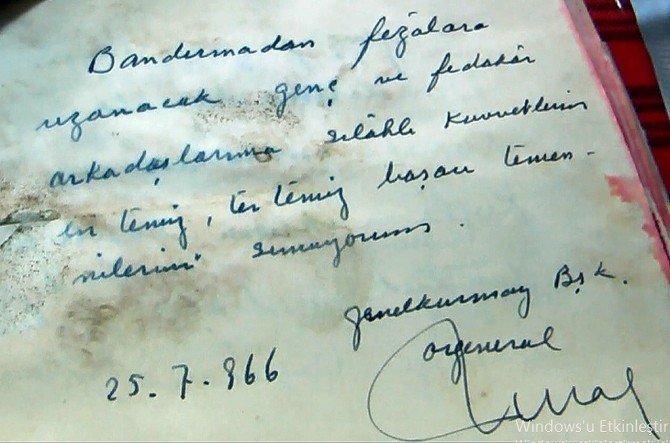 Bandırmadan fezalara
uzanacak genç ve fedakâr
arkadaşlarıma silâhlı kuvvetlerin
en temiz, ter temiz başarı temen-
nilerimi sunuyorum.
Genelkurmay Bşk.
Orgeneral
25.7.966
Windows'u Etkinleştir